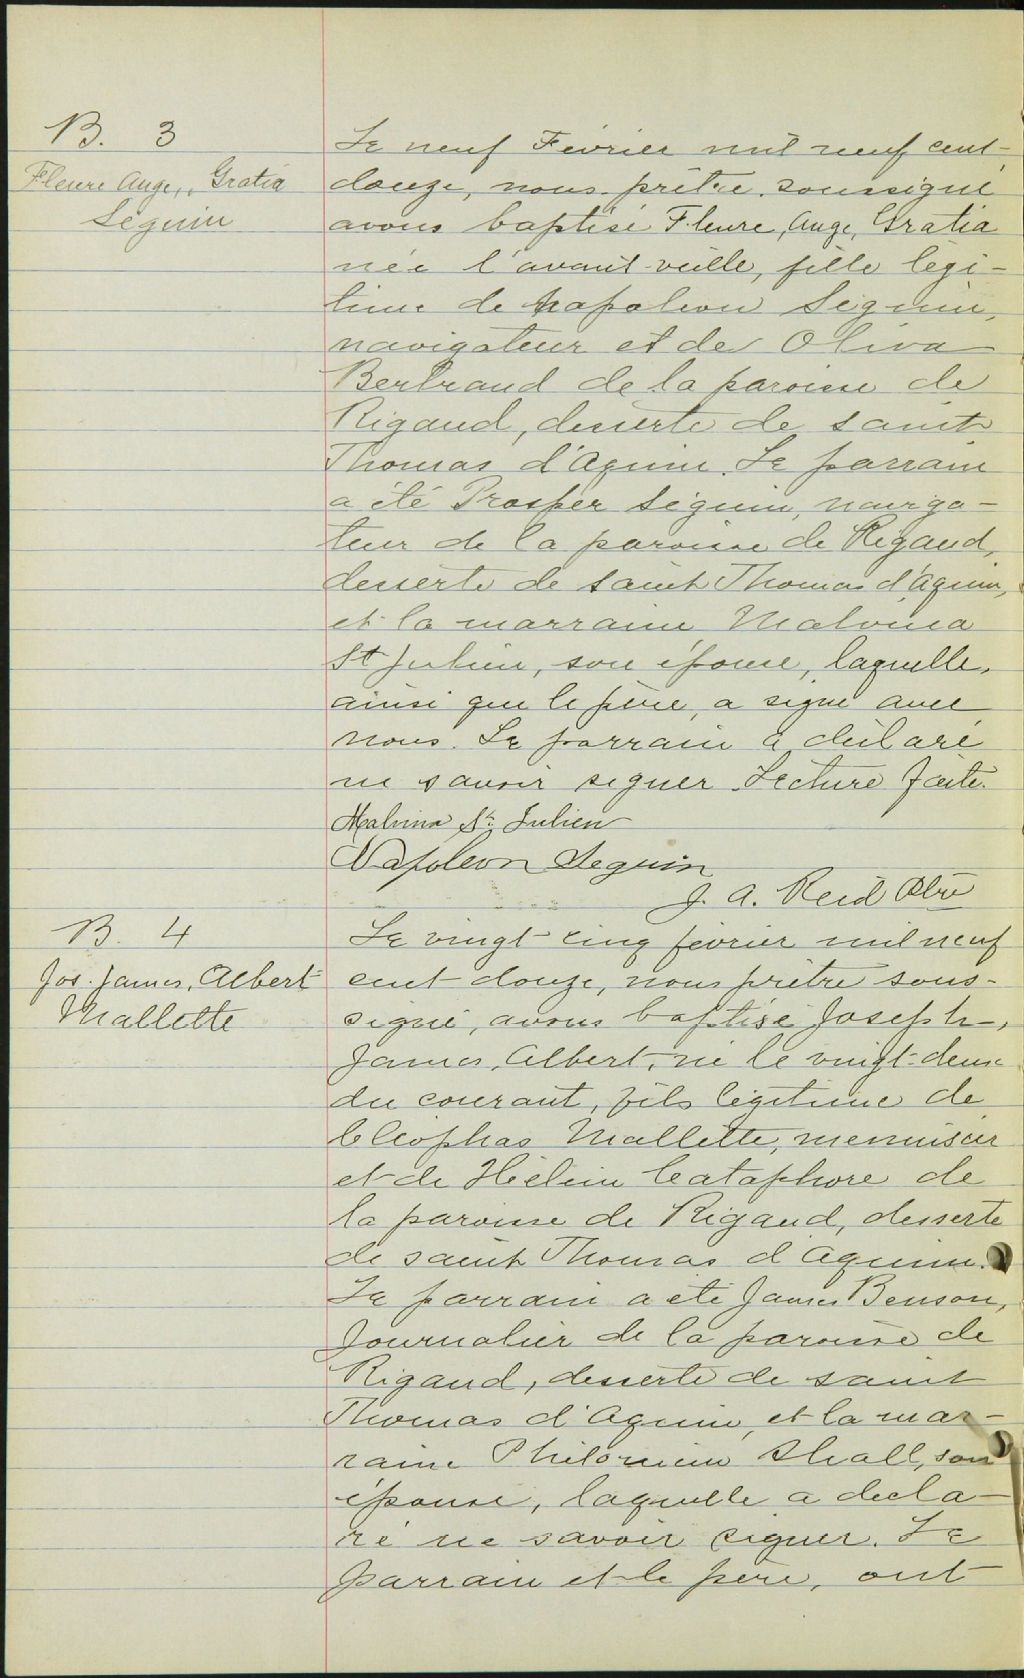 B. 3
Fleure Ange, Gratia
Séguin
Le neuf Février mil neuf cent
douze, nous prêtre soussigné
avons baptisé Fleure, Ange, Gratia
née l'avant-veille, fille légi-
time de Napoléon Séguin,
navigateur et de Oliva
Bertrand de la paroisse de
Rigaud, desserte de saint
Thomas d'Aquin. Le parrain
a été Prosper Séguin, naviga-
teur de la paroisse de Rigaud,
desserte de saint Thomas d'Aquin,
et la marraine Malvina
St Julien, son épouse, laquelle,
ainsi que le père, a signé avec
nous. Le parrain a déclaré
ne savoir signer. Lecture faite.
Malvina St Julien
Napoleon Seguin
J. A. Reid Ptre
B. 4
Jos. James, Albert
Mallette
Le vingt cinq février mil neuf
cent douze, nous prêtre sous-
signé, avons baptisé Joseph,
James, Albert, né le vingt-deux
du courant, fils légitime de
Cléophas Mallette, menuisier
et de Hélène Cataphore de
la paroisse de Rigaud, desserte
de saint Thomas d'Aquin.
Le parrain a été James Benson,
Journalier de la paroisse de
Rigaud, desserte de saint
Thomas d'Aquin, et la mar-
raine Philomène Shall, son
épouse, laquelle a décla-
ré ne savoir signer. Le
parrain et le père, ont